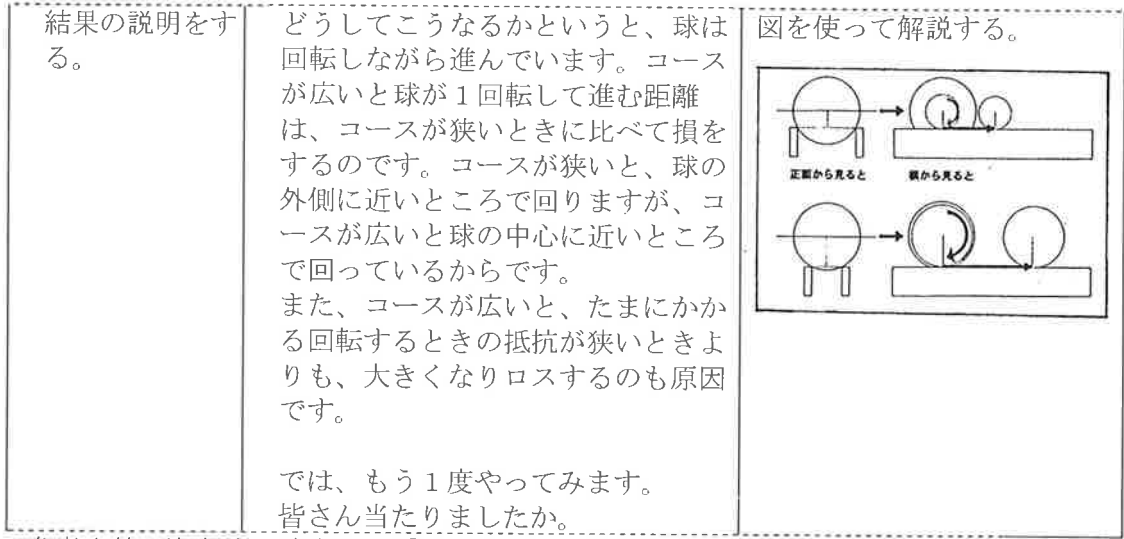 結果の説明をす
る。
どうしてこうなるかというと、球は
回転しながら進んでいます。コース
が広いと球が１回転して進む距離
は、コースが狭いときに比べて損を
するのです。コースが狭いと、球の
外側に近いところで回りますが、コ
ースが広いと球の中心に近いところ
で回っているからです。
また、コースが広いと、たまにかか
る回転するときの抵抗が狭いときよ
りも、大きくなりロスするのも原因
です。
では、もう１度やってみます。
皆さん当たりましたか。
図を使って解説する。
正面から見ると
横から見ると